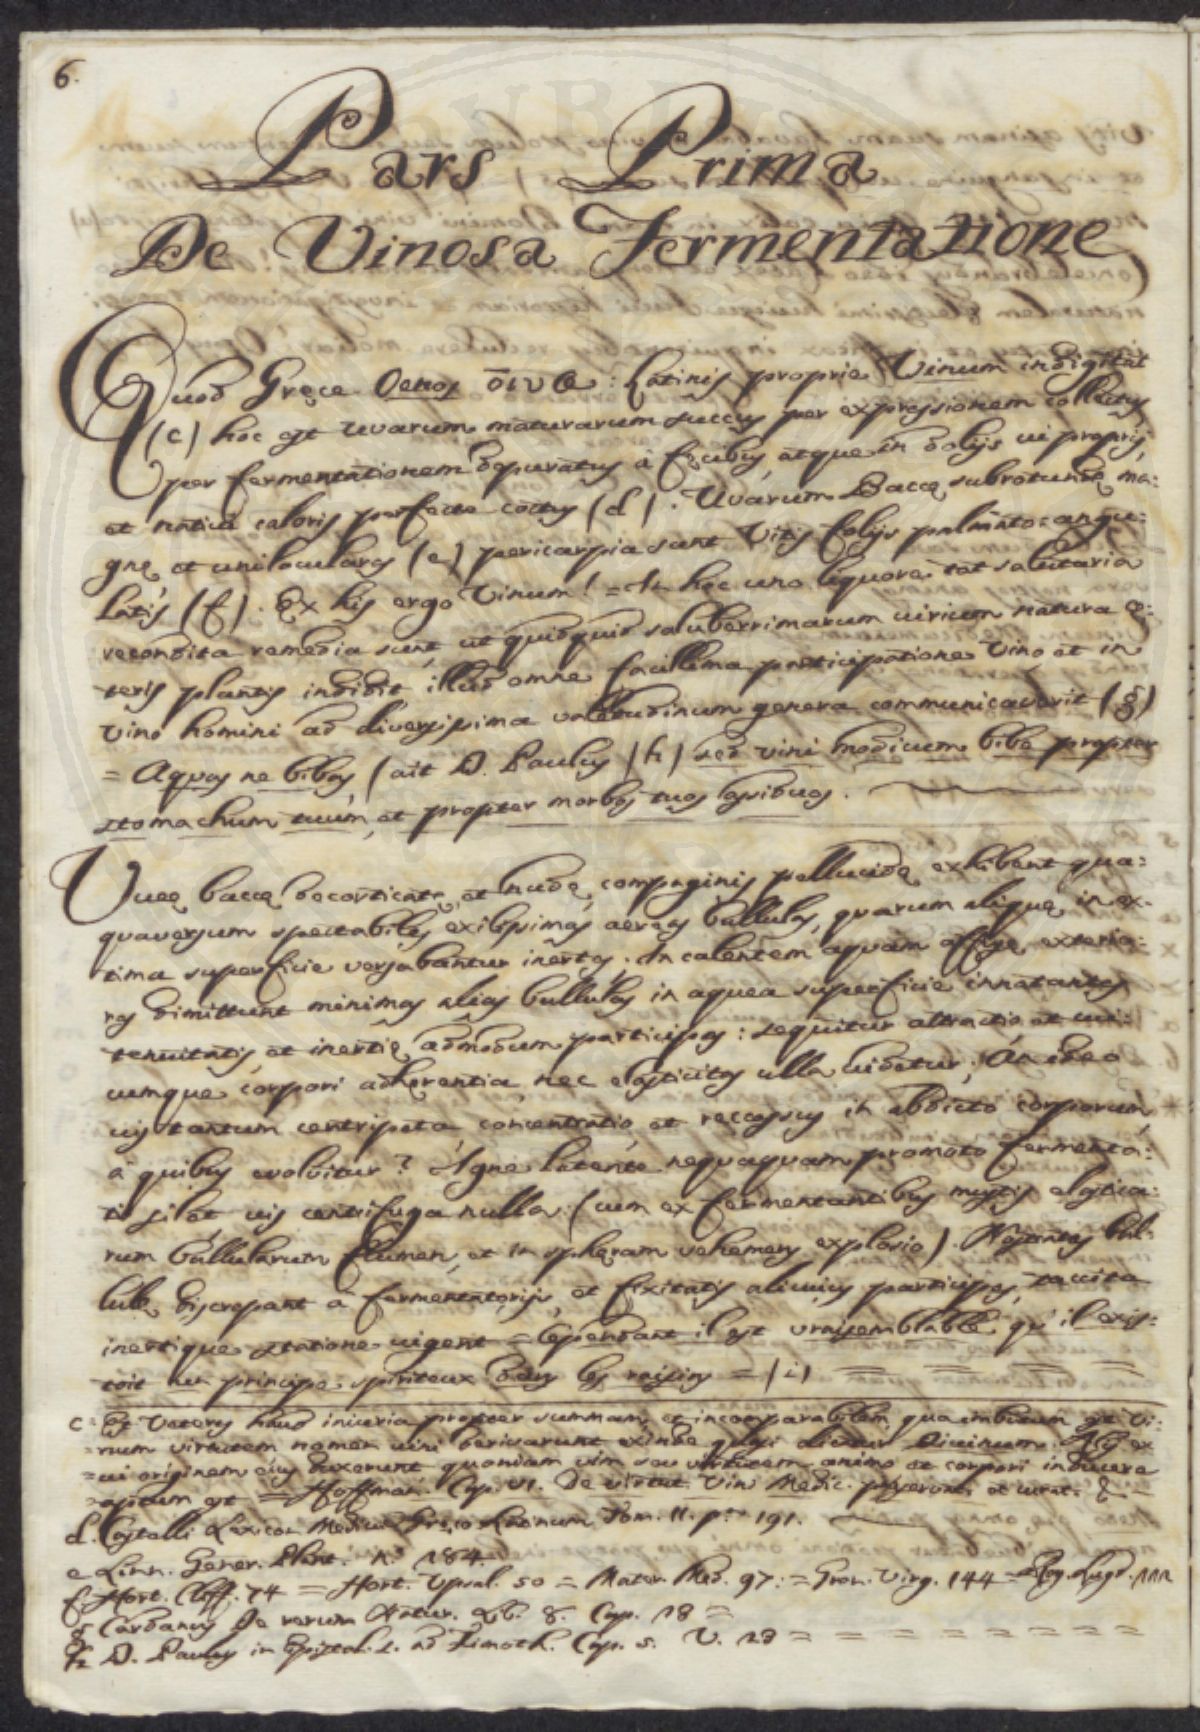 6.
Pars Prima
De Vinosa Fermentatione
Quod Gręce Oenos : Latinis proprie Vinum indigitat
(c) hoc est Uvarum maturarum succus per expressionem collectus,
per fermentationem depuratus à fęcibus, atque in dolijs vi proprij,
et nativi caloris perfecte coctus (d). Uvarum Baccę subrotundę, ma:
gnę et uniloculares (e) pericarpia sunt Vitis folijs palmato=angu:
latis (f). Ex his ergo Vinum! = In hoc uno liquore tot salutaria
recondita remedia sunt, ut quidquid saluberrimarum virium natura cę:
teris plantis indidit, illud omne facillima participatione Vino et in
vino homini ad diversissima valetudinum genera communicaverit (g)
= Aquas ne bibas, (ait D. Paulus (h) sed vini modicum bibe propter
stomachum tuum, et propter morbos tuos
Uvę baccę decorticatę, et nudę, compaginis pellucidę exhibent qua:
quaversum spectabiles exilissimas aereas bullulas, quarum aliquę in ex:
tima superficie versabantur inertes. In calentem aquam
dimittunt minimas alias bullulas in aquea superficie innatantes
tenuitatis, et inertię admodum participes: sequitur attractio et utri:
cumque corpori adherentia, nec elasticitas ulla videtur; An ideo
vis tantum centripeta concentratio, et recessus in abdicto corporum,
à quibus evolvitur? Igne latente nequaquam promoto fermenta:
ti sit vis centrifuga nulla (cum ex fermentantibus mustis elastica:
rum bullularum flumen, et in sphęram vehemens explosio). bul:
lulę discrepant à fermentatorijs, et fixitatis alicuius participes, tacita
inertique statione vigent = Cependant il est vraisemblable qu'il exis:
toit un principe spiriteux dans les raisins = (i)
c Veteres haud iniuria propter summam, et incomparabilem, qua imbutum est Vi:
=num virtutem nomen vini derivarunt exinde quasi Divinum. ex
=vi originem eius duxerunt quoniam vim seu virtutem animo et corpori inducere
=aptum est = Hoffman. Cap. VI. De virtut. Vini Medic.
d. Castelli Lexicon Medicum Gręco Latinum Tom. II. p.ᵃ 191.
e Linn. Gener. Plant. n. 284.
f Hort. Cliff. 74 = Hort. Upsal. 50 = Mater. Med. 97 = Gron. Virg. 144 = Roy. Lugd.
g Cardanus De rerum Natur. Lib. 8. Cap. 18 =
h D. Paulus in Epistol. 1. ad Timoth. Cap. 5. V. 23 = = = = = = = =